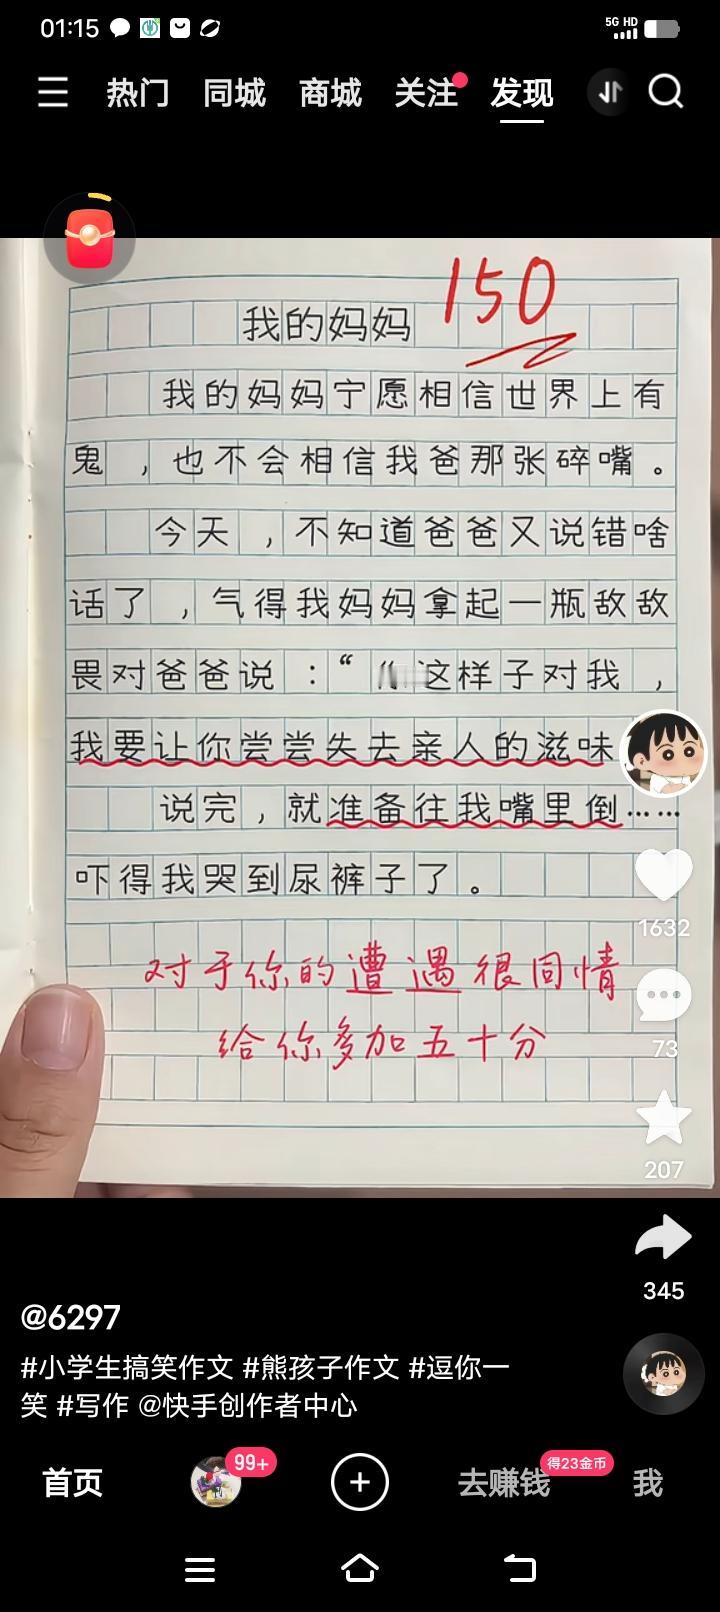 01:15
5G HD
热门 同城 商城 关注 发现
150
我的妈妈
我的妈妈宁愿相信世界上有
鬼，也不会相信我爸那张碎嘴。
今天，不知道爸爸又说错啥
话了，气得我妈妈拿起一瓶敌敌
畏对爸爸说：“你这样子对我，
我要让你尝尝失去亲人的滋味
说完，就准备往我嘴里倒……
吓得我哭到尿裤子了。
对于你的遭遇很同情
给你多加五十分
1632
73
207
345
@6297
#小学生搞笑作文 #熊孩子作文 #逗你一
笑 #写作 @快手创作者中心
首页 99+ 去赚钱 得23金币 我